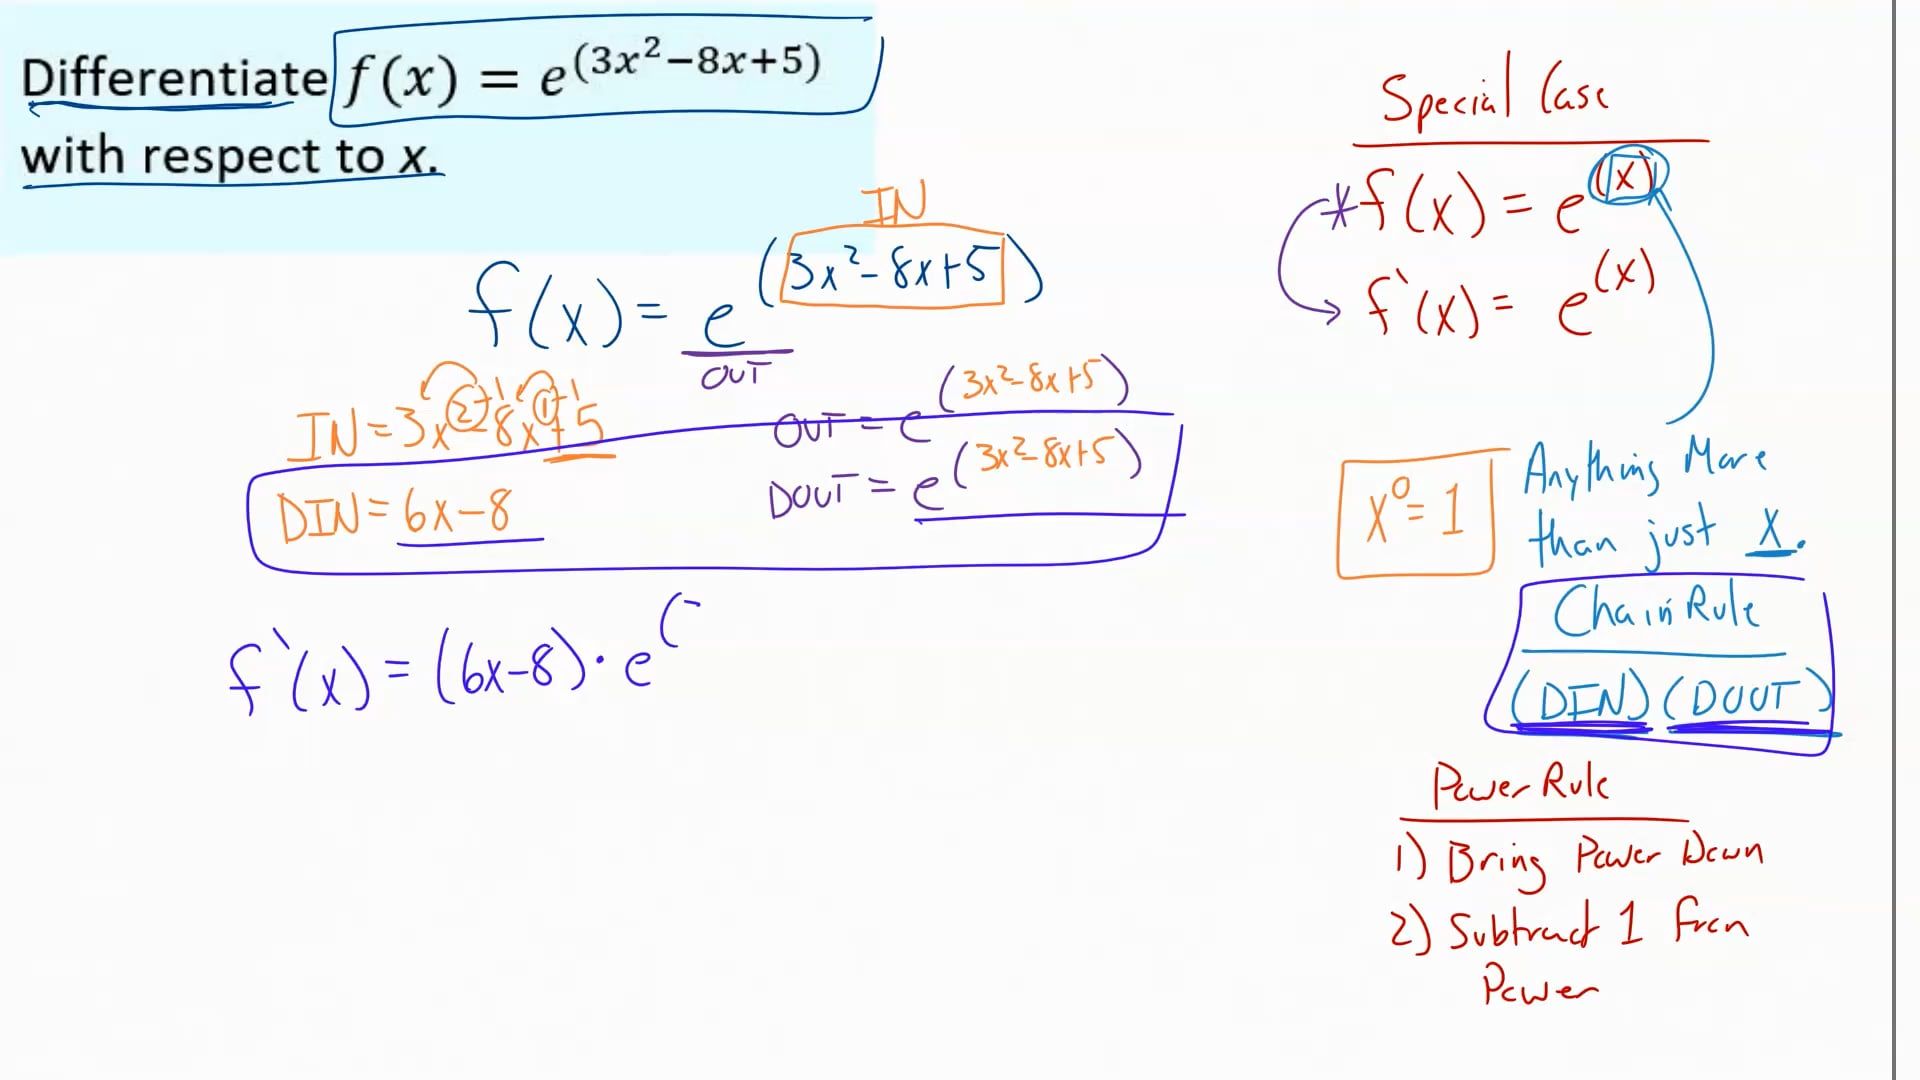 Differentiate f(x) = e^(3x²−8x+5)
with respect to x.
IN
f(x) = e^(3x²−8x+5)
OUT
IN = 3x^2−1 − 8x^1−1 + 5
DIN = 6x−8
OUT = e^(3x²−8x+5)
DOUT = e^(3x²−8x+5)
f`(x) = (6x−8)·e^(
Special Case
*f(x) = e^(x)
f`(x) = e^(x)
x⁰ = 1
Anything More
than just x.
Chain Rule
(DIN)(DOUT)
Power Rule
1) Bring Power Down
2) Subtract 1 from
Power